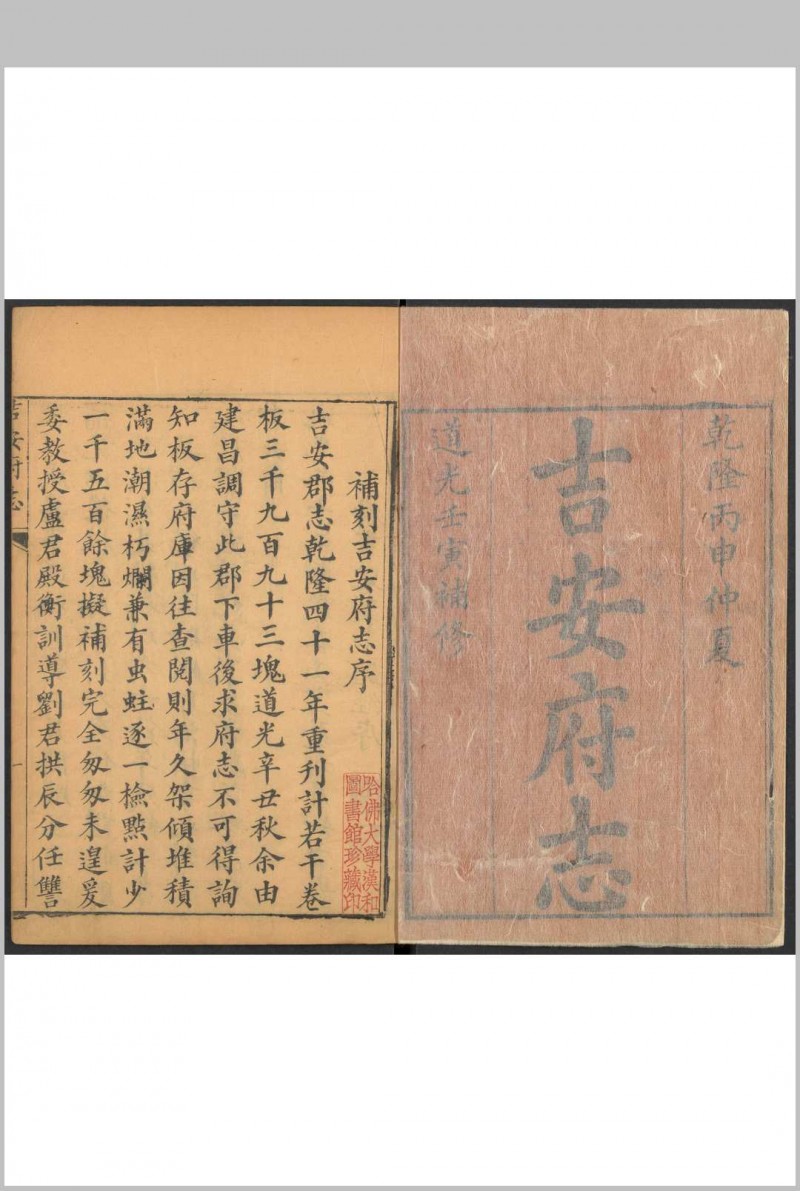 乾隆丙申仲夏
吉安府志
道光壬寅補修
補刻吉安府志序
吉安郡志乾隆四十一年重刊計若干卷
板三千九百九十三塊道光辛丑秋余由
建昌調守此郡下車後求府志不可得詢
知板存府庫因往查閱則年久架傾堆積
滿地潮濕朽爛兼有虫蛀逐一檢點計少
一千五百餘塊擬補刻完全匆匆未遑爰
委教授盧君殿衡訓導劉君拱辰分任讐
吉安府志
哈佛大學漢和
圖書館珍藏印